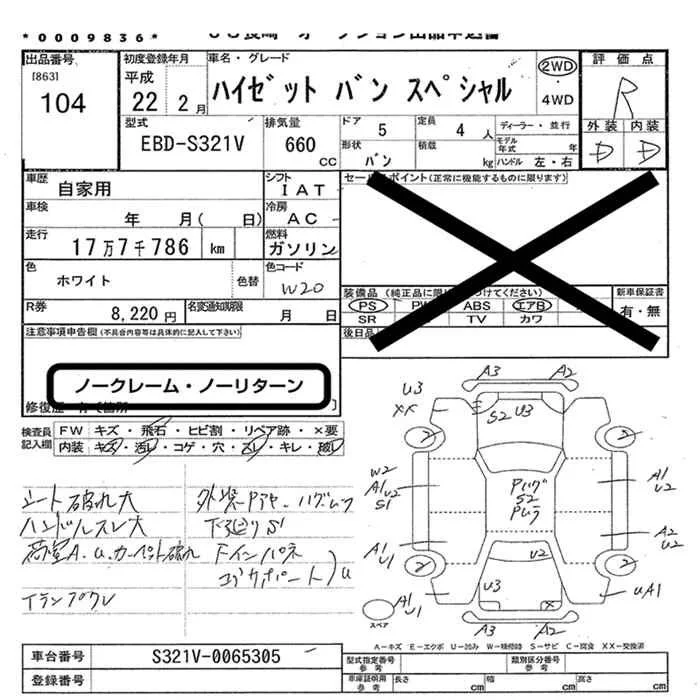 *0009836*
出品番号
[863]
104
初度登録年月
平成
22 2月
車名・グレード
ハイゼット バン スペシャル
2WD
4WD
評価点
R
外装 内装
D D
型式
EBD-S321V
排気量
660 cc
ドア 5
形状 バン
定員 4 人
積載 kg
ディーラー・並行
モデル年式 年
ハンドル 左・右
車歴 自家用
シフト IAT
セールスポイント(正常に機能するものに限ります)
車検 年 月( 日)
冷房 AC
走行 17万7千786 km
燃料 ガソリン
色 ホワイト 色替
色コード W20
R券 8,220円
名変通知期限 月 日
装備品
PS ABS エアB
SR TV カワ
新車保証書
有・無
注意事項申告欄(不具合内容等は具体的に記入して下さい)
ノークレーム・ノーリターン
検査員記入欄
FW キズ・飛石・ヒビ割・リペア跡・×要
内装 キズ・汚レ・コゲ・穴・スレ・キレ・破レ
シート破れ大
ハンドルスレ大
荷室A.U.カーペット破れ
下廻りS1
Fインパネ
A3 A2
U3
XX
S2 U3
2 2
W2
A1 U2
S1
A1
U2
S2
A1
U1
A2
U2
U2
2 2
U3
X
A1
U1
UA1
スペア
A3 A2
A-キズ E-エクボ U-凹み W-補修跡 S-サビ C-腐食 XX-交換済
車台番号 S321V-0065305
登録番号
型式指定番号 参考
類別区分番号 参考
車庫証明用 参考
長さ cm
幅 cm
高さ cm